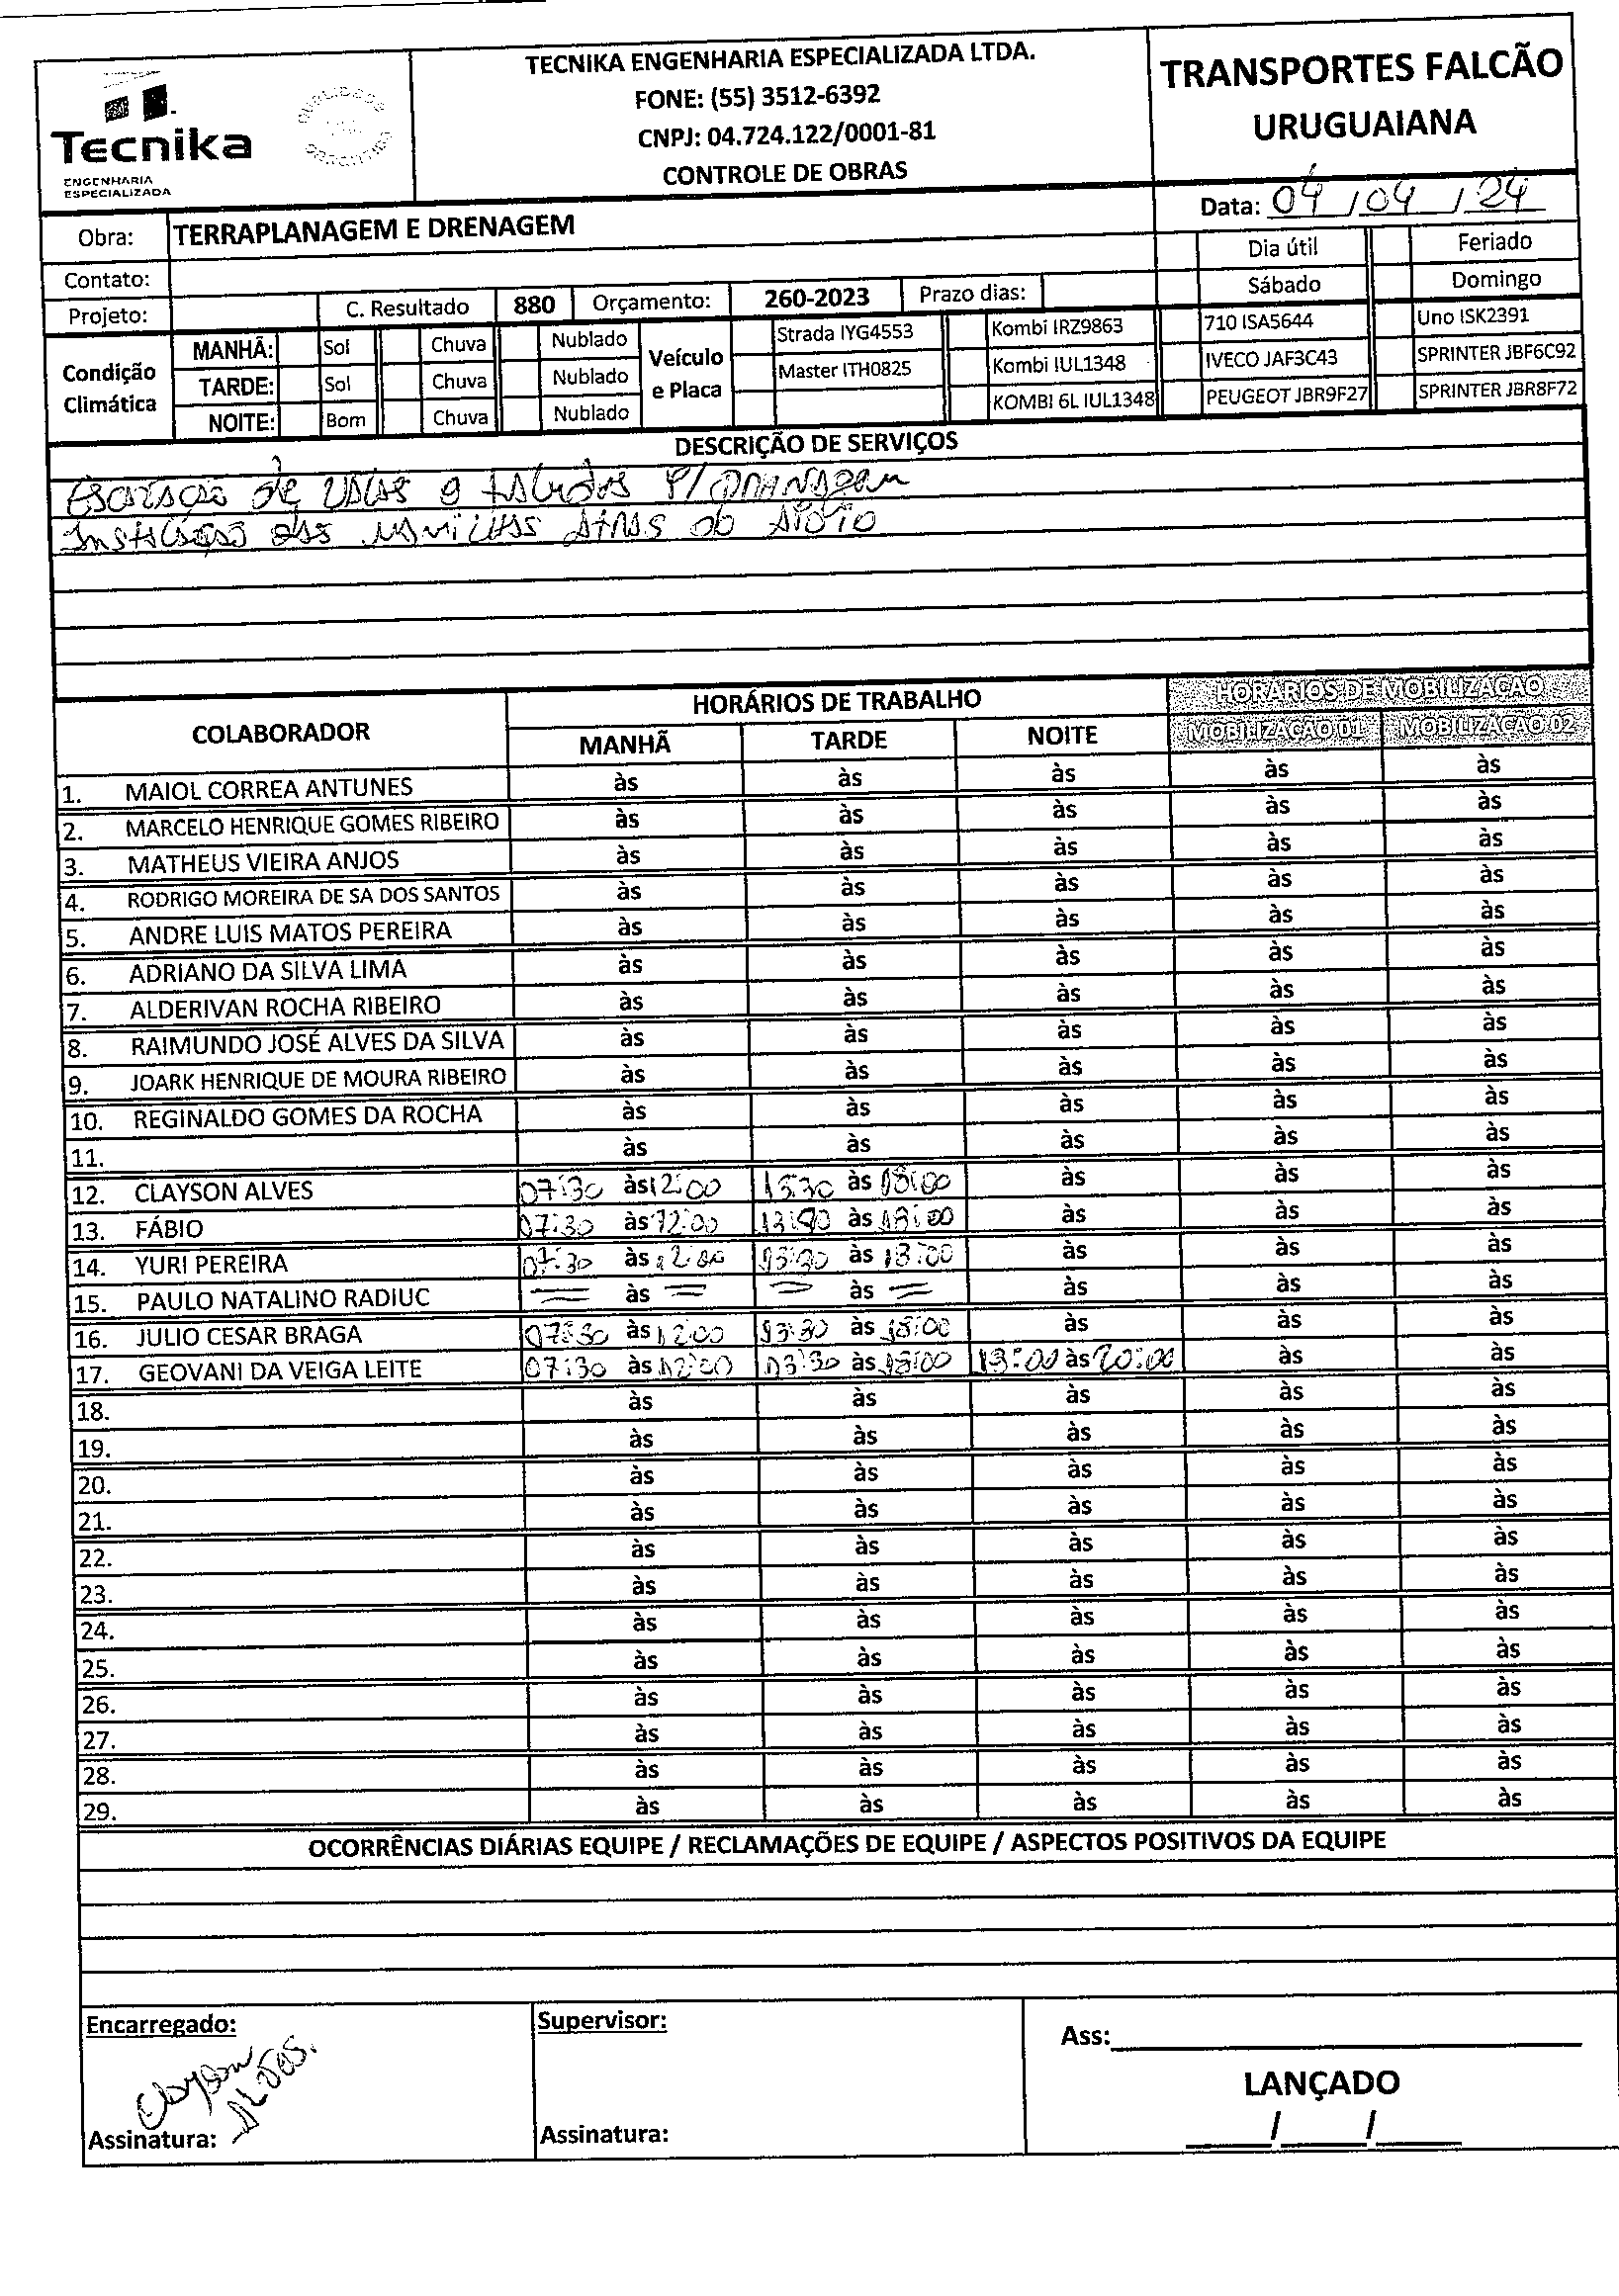 TECNIKA ENGENHARIA ESPECIALIZADA LTDA.
FONE: (55) 3512-6392
CNPJ: 04.724.122/0001-81
CONTROLE DE OBRAS
Tecnika
ENGENHARIA
ESPECIALIZADA
TRANSPORTES FALCÃO
URUGUAIANA
Data: 04 / 04 / 24
Obra: TERRAPLANAGEM E DRENAGEM
Dia útil Feriado
Contato:
Sábado Domingo
Projeto: C. Resultado 880 Orçamento: 260-2023 Prazo dias:
Condição Climática
MANHÃ: Sol Chuva Nublado
TARDE: Sol Chuva Nublado
NOITE: Bom Chuva Nublado
Veículo e Placa
Strada IYG4553 Kombi IRZ9863 710 ISA5644 Uno ISK2391
Master ITH0825 Kombi IUL1348 IVECO JAF3C43 SPRINTER JBF6C92
KOMBI 6L IUL1348 PEUGEOT JBR9F27 SPRINTER JBR8F72
DESCRIÇÃO DE SERVIÇOS
de e P/
das atras do
COLABORADOR HORÁRIOS DE TRABALHO HORÁRIOS DE MOBILIZAÇÃO
MANHÃ TARDE NOITE MOBILIZAÇÃO 01 MOBILIZAÇÃO 02
1. MAIOL CORREA ANTUNES às às às às às
2. MARCELO HENRIQUE GOMES RIBEIRO às às às às às
3. MATHEUS VIEIRA ANJOS às às às às às
4. RODRIGO MOREIRA DE SA DOS SANTOS às às às às às
5. ANDRE LUIS MATOS PEREIRA às às às às às
6. ADRIANO DA SILVA LIMA às às às às às
7. ALDERIVAN ROCHA RIBEIRO às às às às às
8. RAIMUNDO JOSÉ ALVES DA SILVA às às às às às
9. JOARK HENRIQUE DE MOURA RIBEIRO às às às às às
10. REGINALDO GOMES DA ROCHA às às às às às
11. às às às às às
12. CLAYSON ALVES 07:30 às 12:00 13:30 às 18:00 às às às
13. FÁBIO 07:30 às 12:00 às 18:00 às às às
14. YURI PEREIRA 07:30 às 12:00 13:30 às 18:00 às às às
15. PAULO NATALINO RADIUC = às = = às = às às às
16. JULIO CESAR BRAGA 07:30 às 12:00 13:30 às 18:00 às às às
17. GEOVANI DA VEIGA LEITE 07:30 às 12:00 13:30 às 18:00 às 20:00 às às
18. às às às às às
19. às às às às às
20. às às às às às
21. às às às às às
22. às às às às às
23. às às às às às
24. às às às às às
25. às às às às às
26. às às às às às
27. às às às às às
28. às às às às às
29. às às às às às
OCORRÊNCIAS DIÁRIAS EQUIPE / RECLAMAÇÕES DE EQUIPE / ASPECTOS POSITIVOS DA EQUIPE
Encarregado: Supervisor: Ass:
Clayson Alves.
LANÇADO
Assinatura: Assinatura: / /